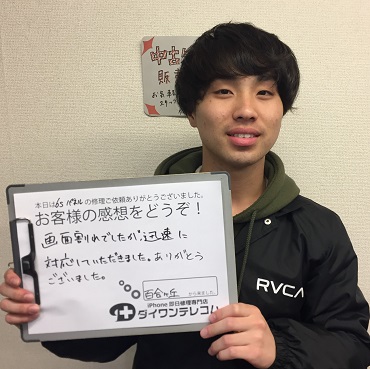 中古
販売
お名前
スタッフ
本日は6Sパネルの修理ご依頼ありがとうございました。
お客様の感想をどうぞ！
画面割れでしたが迅速に
対応していただきました。ありがとう
ございました。
百合ヶ丘 から来ました。
iPhone 即日修理専門店
ダイワンテレコム
RVCA